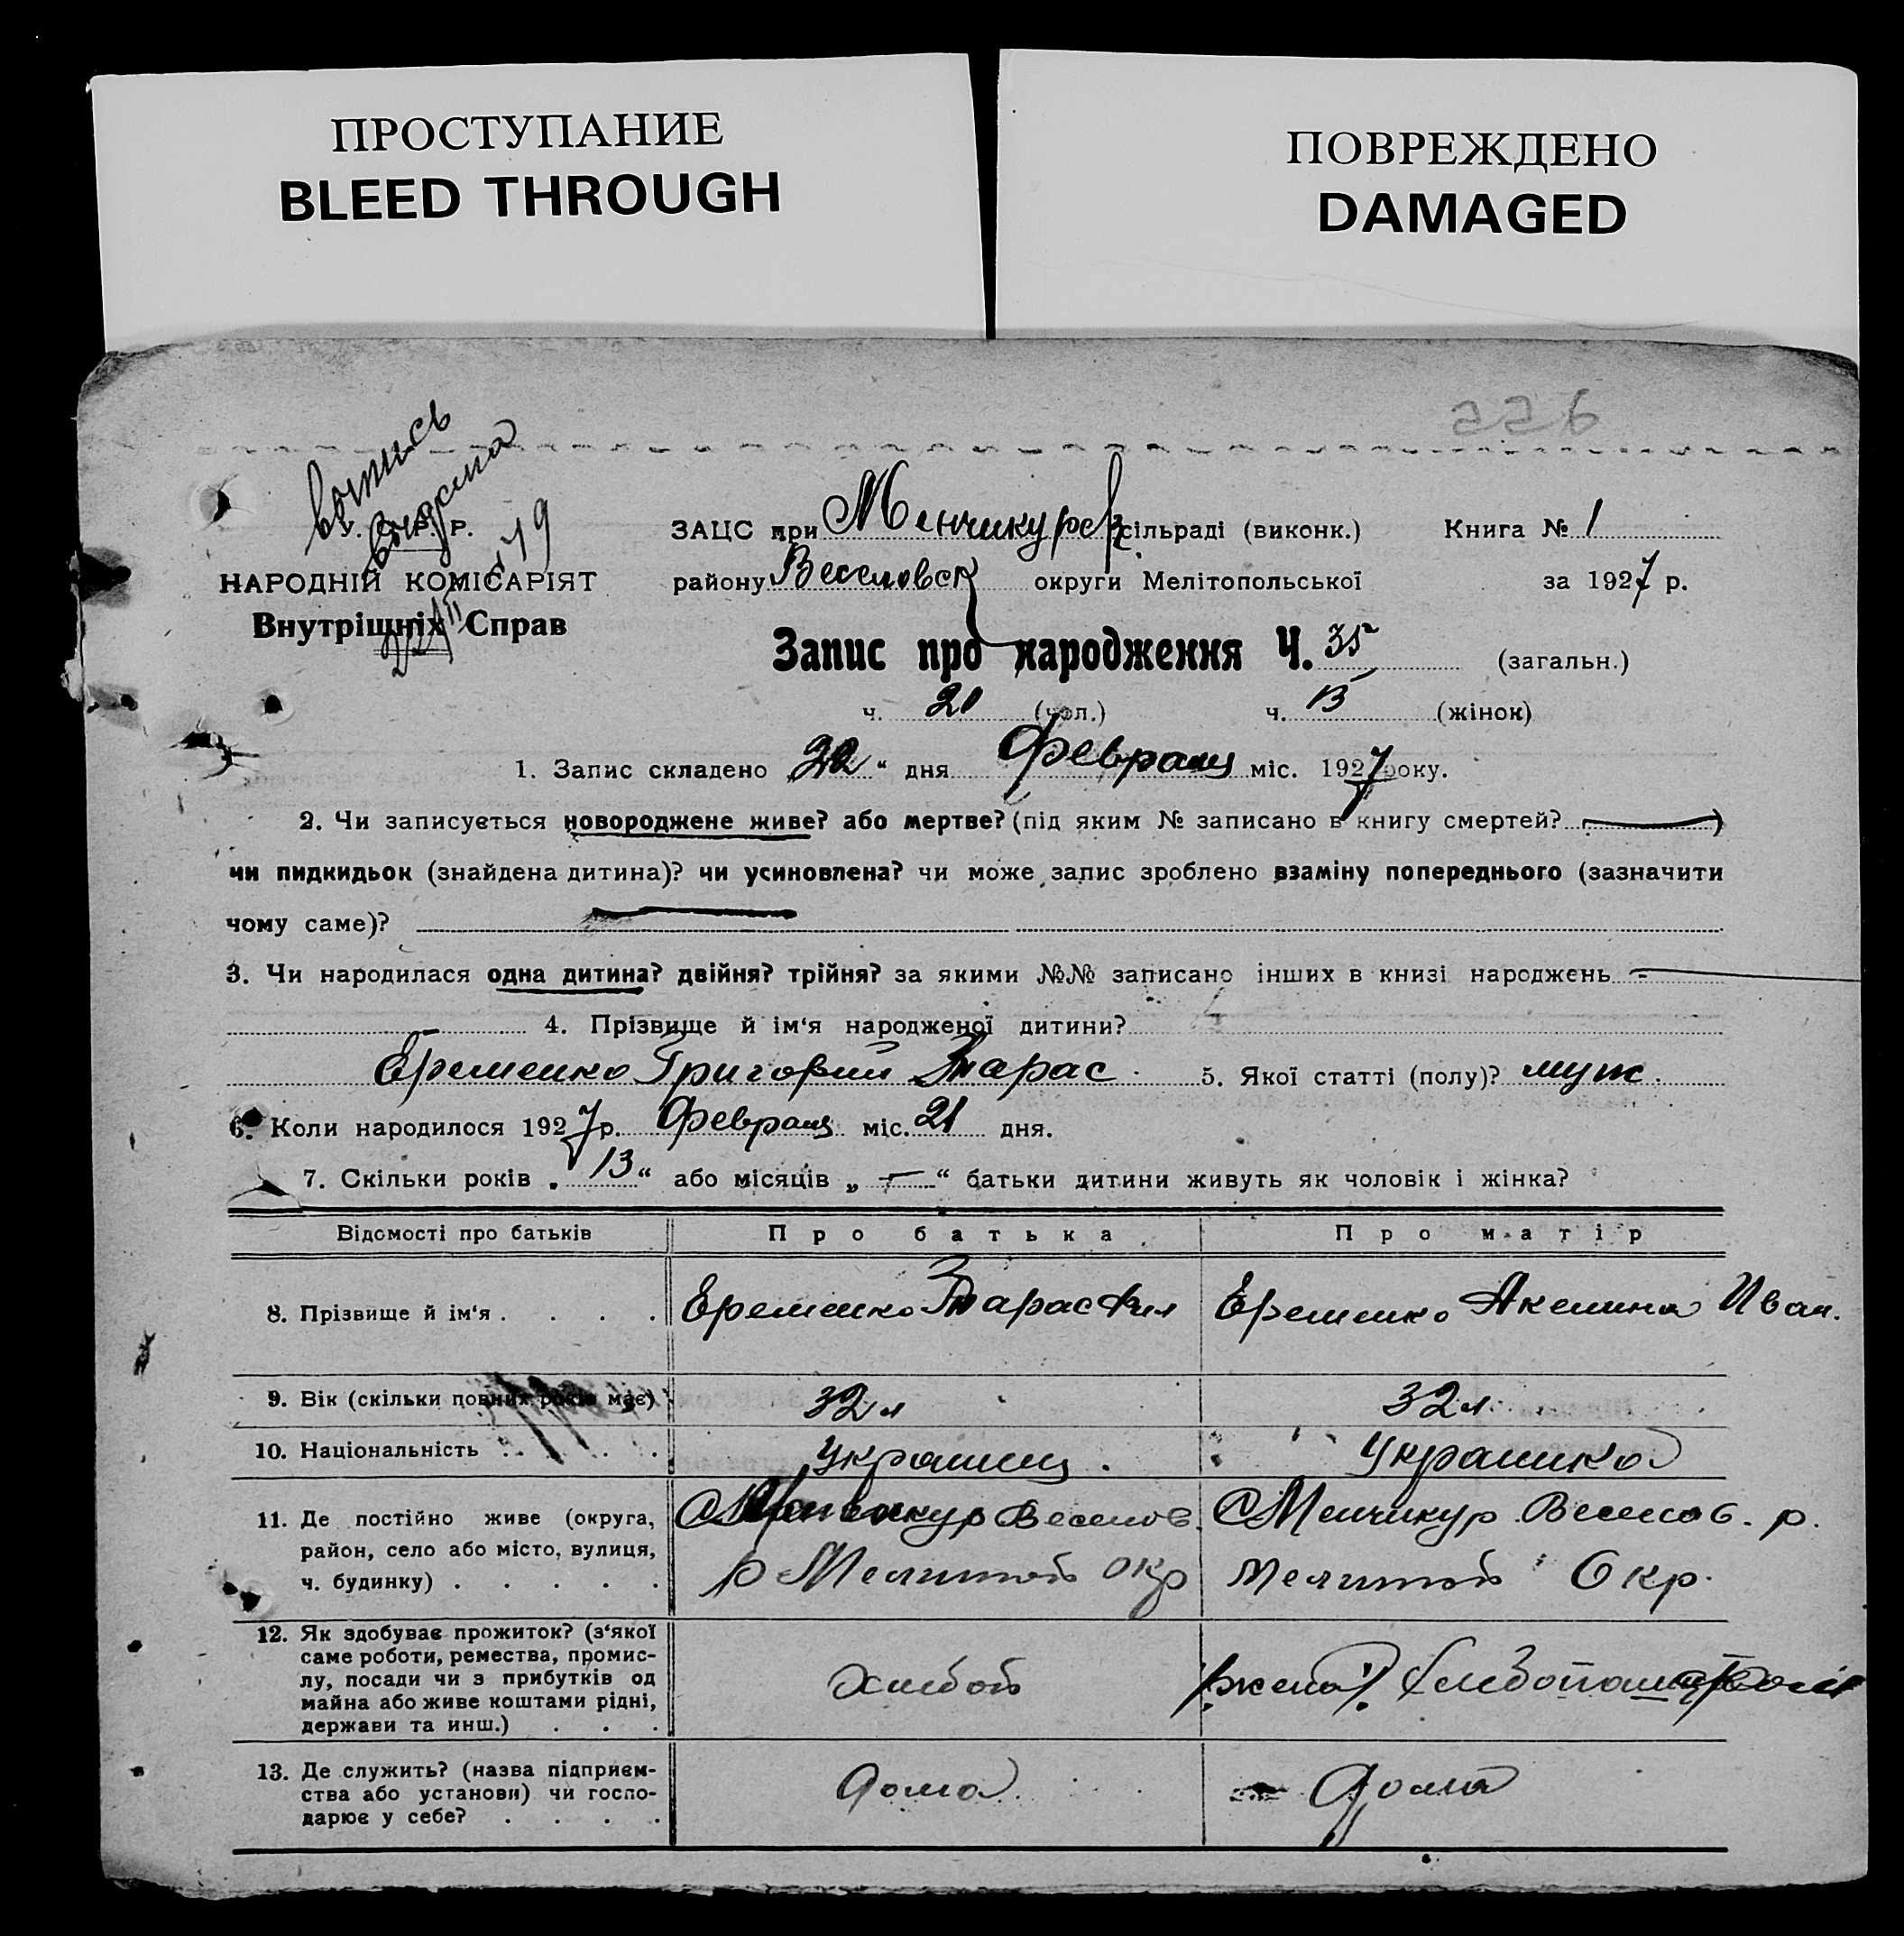 ПРОСТУПАНИЕ
BLEED THROUGH
ПОВРЕЖДЕНО
DAMAGED
226
выпись
выдана
У. С. Р. Р.
НАРОДНІЙ КОМІСАРІЯТ
Внутрішніх Справ
ЗАЦС при Менчикур сільраді (виконк.) Книга № 1
району Веселовск округи Мелітопольської за 1927 р.
Запис про народження Ч. 35 (загальн.)
ч. 20 (чол.) ч. 15 (жінок)
1. Запис складено 22 “ дня Февраля міс. 1927 року.
2. Чи записується новороджене живе? або мертве? (під яким № записано в книгу смертей? )
чи пидкидьок (знайдена дитина)? чи усиновлена? чи може запис зроблено взаміну попереднього (зазначити
чому саме)?
3. Чи народилася одна дитина? двійня? трійня? за якими №№ записано інших в книзі народжень -
4. Прізвище й ім‘я народженої дитини?
Еременко Григорий Тарас. 5. Якої статті (полу)? муж.
6. Коли народилося 1927 р. Февраля міс. 21 дня.
7. Скільки років „ 13 “ або місяців „ — “ батьки дитини живуть як чоловік і жінка?
Відомості про батьків Про батька Про матір
8. Прізвище й ім‘я . . . . Еременко Тарас Фил Еременко Акелина Иван.
9. Вік (скільки повних років має) 32 л 32 л
10. Національність . . . . . украинец украинка
11. Де постійно живе (округа,
район, село або місто, вулиця,
ч. будинку) . . . . .
с Менчикур Веселов.
р Мелитоп окр
с Менчикур Веселов. р.
Мелитоп Окр.
12. Як здобуває прожиток? (з‘якої
саме роботи, ремества, промис-
лу, посади чи з прибутків од
майна або живе коштами рідні,
держави та инш.) . . .
Хлебоп
жена
13. Де служить? (назва підприєм-
ства або установи) чи госпо-
дарює у себе? . . . .
дома
дома